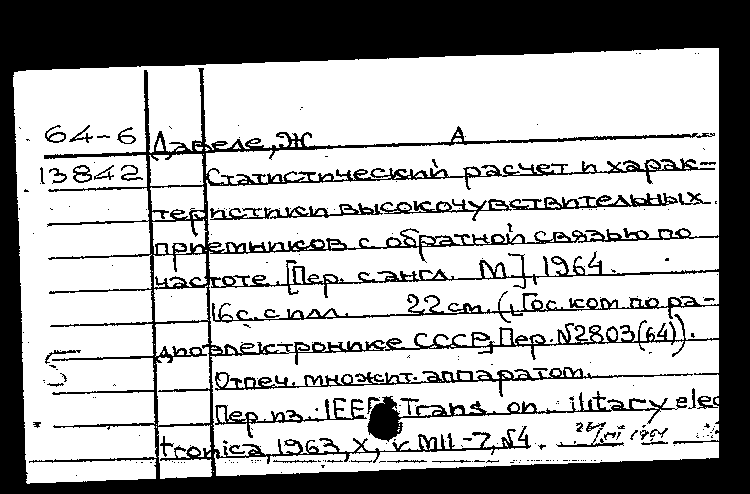 64-6 Давеле, Ж А
13842 Статистический расчет и харак-
теристики высокочувствительных
приемников с обратной связью по
частоте. [Пер. с англ. М], 1964.
16с. с илл. 22 см. (Гос. ком. по ра-
диоэлектронике СССР, Пер. №2803(64)).
5
Отпеч. множит. аппаратом.
Пер. из.: IEEE Trans. on. ilitary elec
tronica, 1963, X, v. MIL-7, №4.